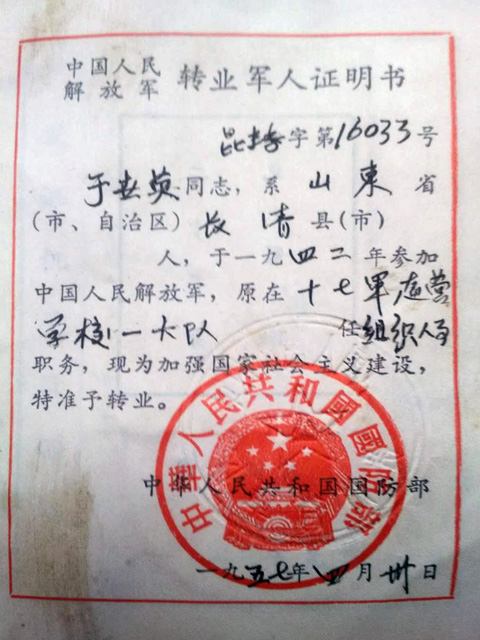 中国人民
解放军
转业军人证明书
昆转字第16033号
于世英同志，系山東省
(市、自治区)长清县(市)
人，于一九四二年参加
中国人民解放军，原在十七軍速营
学校一大队 任组织人事
职务，现为加强国家社会主义建设，
特准予转业。
中華人民共和國國防部
中华人民共和国国防部
一九五七年四月卅日